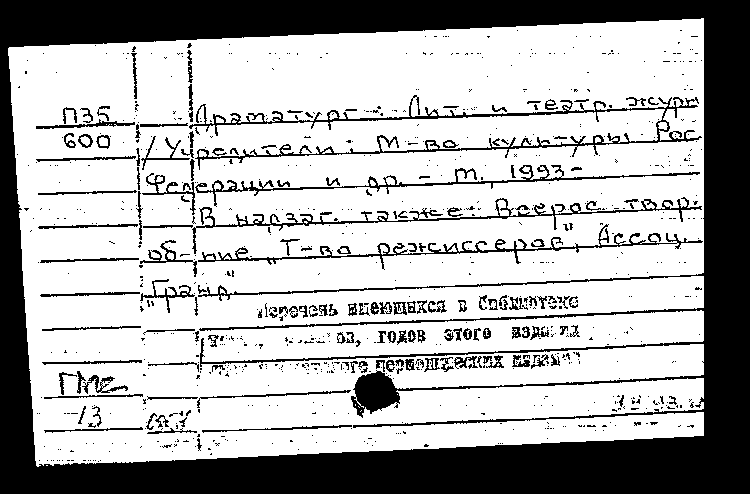 П35
600
Драматург: Лит. и театр. журн
/ Учредители: М-во культуры Рос.
Федерации и др. - М., 1993-
В надзаг. также: Всерос. твор.
об-ние "Т-во режиссеров", Ассоц.
"Гранд".
Перечень имеющихся в библиотеке
годов этого издания
периодических изданий
13